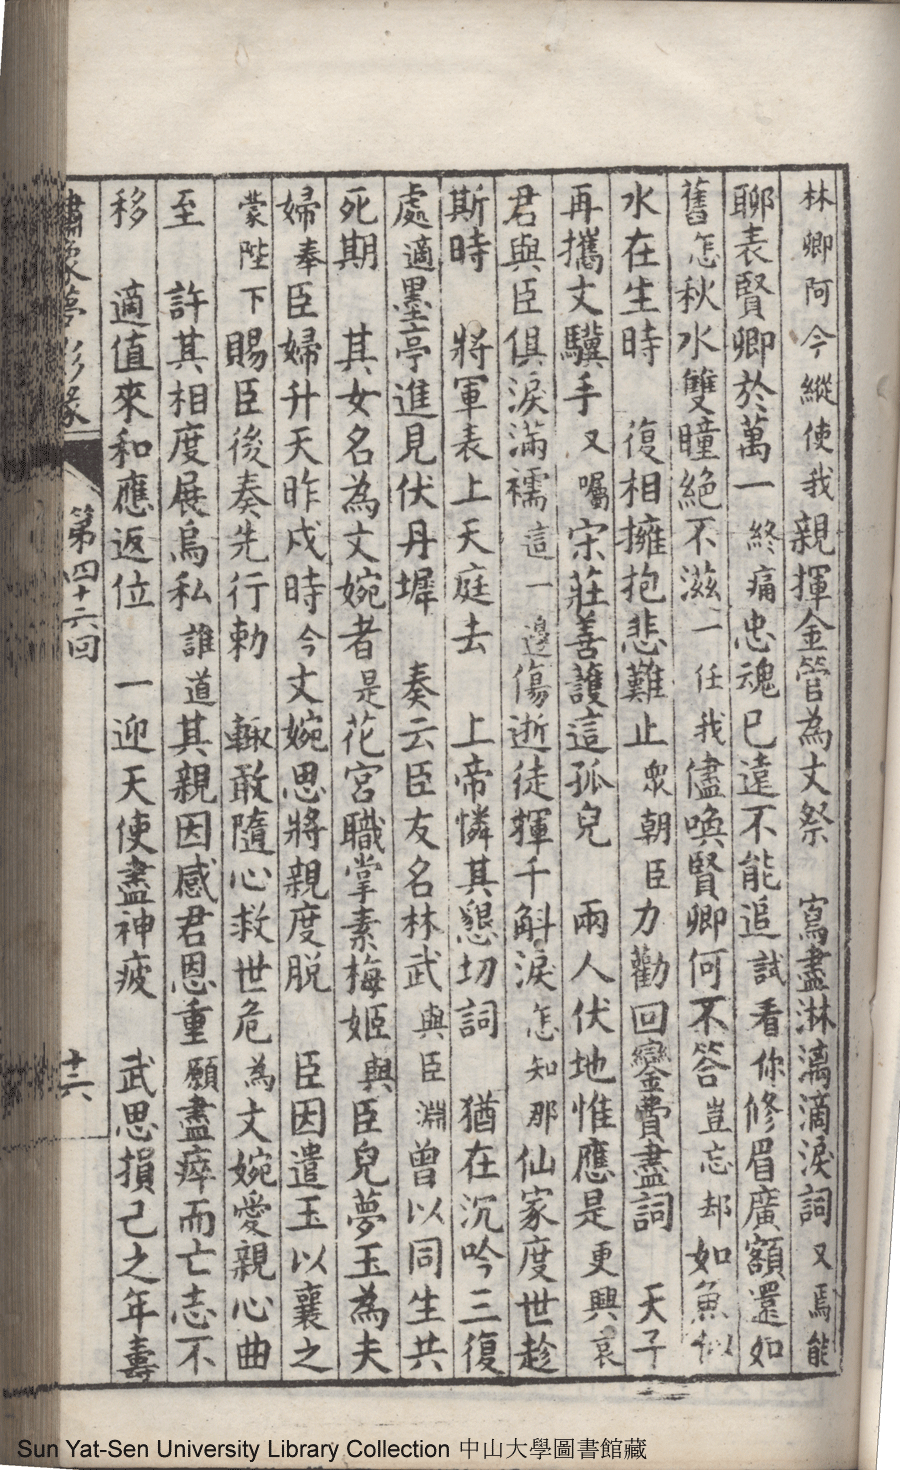 林卿阿今縱使我親揮金管為文祭　寫盡淋漓滴淚詞又焉能
聊表賢卿於萬一終痛忠魂已遠不能追試看你修眉廣額還如
舊怎秋水雙瞳絕不滋一任我儘喚賢卿何不答豈忘却如魚似
水在生時　復相擁抱悲難止衆朝臣力勸回鑾費盡詞　天子
再攜文驥手又囑宋莊善護這孤兒　兩人伏地惟應是更興哀
君與臣俱淚滿襦這一邊傷逝徒揮千斛淚怎知那仙家度世趁
斯時　將軍表上天庭去　上帝憐其懇切詞　猶在沉吟三復
處適墨亭進見伏丹墀　奏云臣友名林武與臣淵曾以同生共
死期　其女名為文婉者是花宮職掌素梅姬與臣兒夢玉為夫
婦奉臣婦升天昨戍時今文婉思將親度脫　臣因遣玉以襄之
蒙陛下賜臣後奏先行勅　輙敢隨心救世危為文婉愛親心曲
至　許其相度展烏私誰道其親因感君恩重願盡瘁而亡志不
移　適值來和應返位　一迎天使盡神疲　武思損己之年壽
繡像夢影緣
第四十六回
十六
Sun Yat-Sen University Library Collection 中山大學圖書館藏